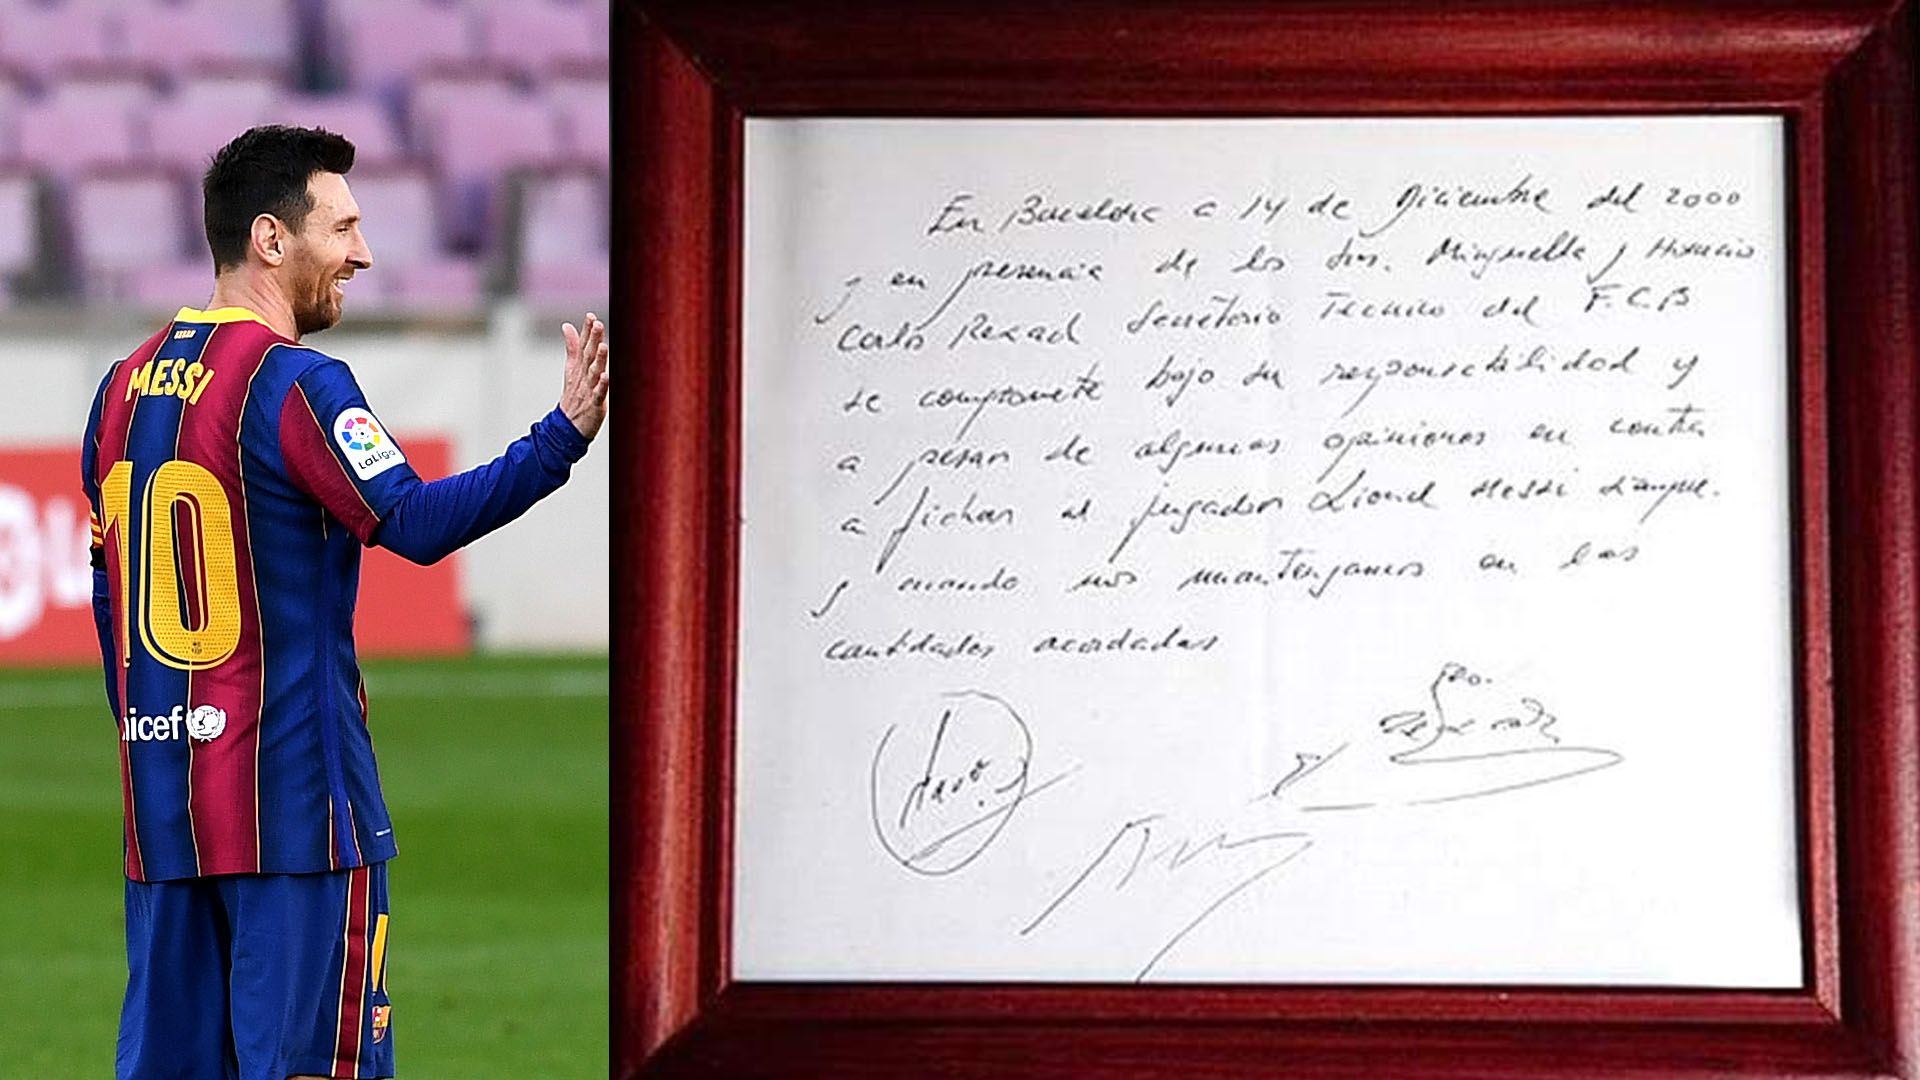 MESSI
10
LaLiga
unicef
En Barcelona a 14 de Diciembre del 2000
y en presencia de los Srs. Minguella y Horacio
Carlos Rexach Secretario Tecnico del F.C.B
se compromete bajo su responsabilidad y
a pesar de algunas opiniones en contra
a fichar al jugador Lionel Messi siempre
y cuando nos mantengamos en las
cantidades acordadas